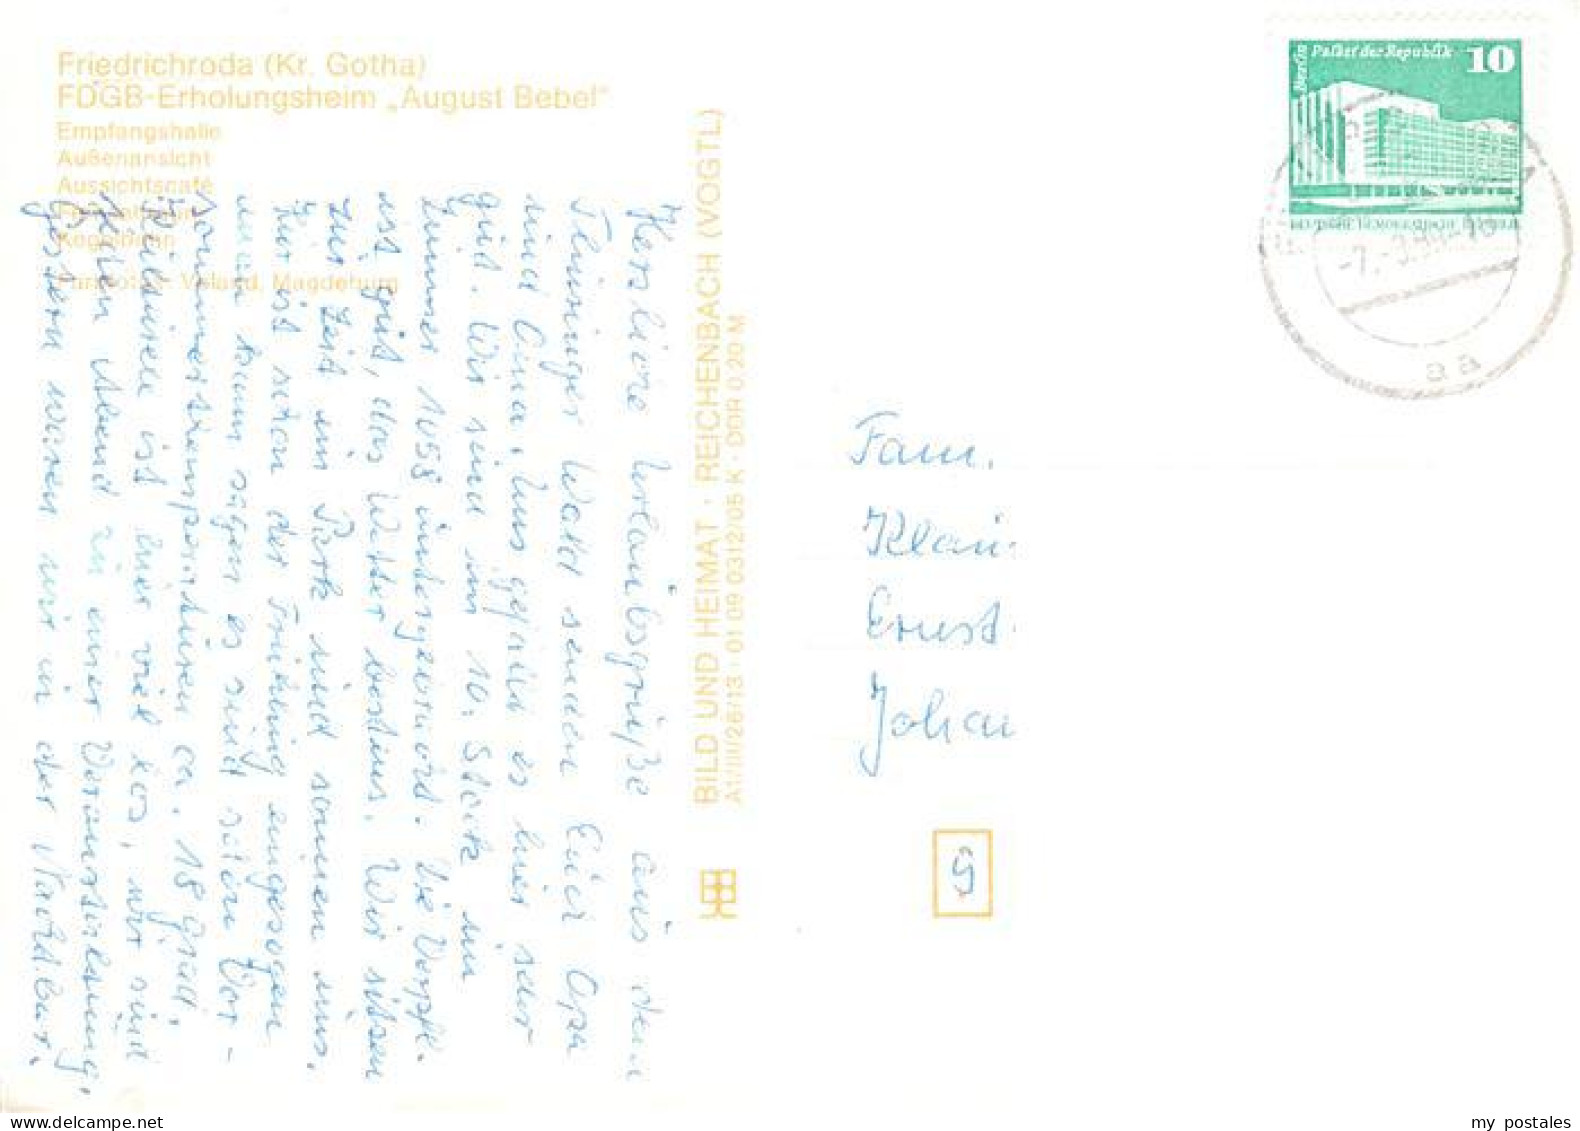 Friedrichroda (Kr. Gotha)
FDGB-Erholungsheim „August Bebel“
Empfangshalle
Außenansicht
Aussichtscafé
Kegelbahn
Veland, Magdeburg
BILD UND HEIMAT · REICHENBACH (VOGTL)
A1/III/26/13 · 01 09 0312/05 K · DDR 0,20 M
Herzliche Urlaubsgrüße aus dem
Thüringer Wald senden Euch Opa
und Oma. Uns gefällt es hier sehr
gut. Wir sind im 10. Stock im
Zimmer 1058 untergebracht. Die Verpfl.
ist gut, das Wetter bestens. Wir sitzen
zur Zeit im Park und sonnen uns.
Hier ist schon der Frühling eingezogen
man kann sagen es sind schon Vor-
sommertemperaturen ca. 18 Grad,
ist hier viel los, wir sind
Abend in einer Veranstaltung,
Gestern waren wir in der Nachbar.
Berlin Palast der Republik 10
aa
Fam.
Klau
Ernst
Johan
9
my postales